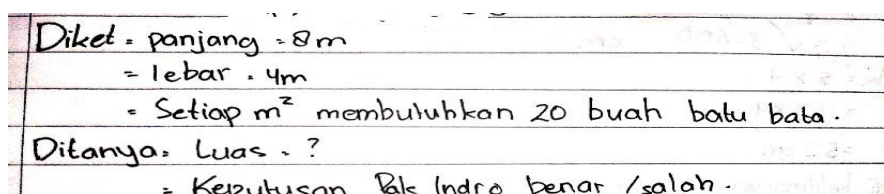 Diket = panjang = 8m
= lebar = 4m
= Setiap m² membutuhkan 20 buah batu bata.
Ditanya = Luas = ?
= Keputusan Pak Indro benar / salah.